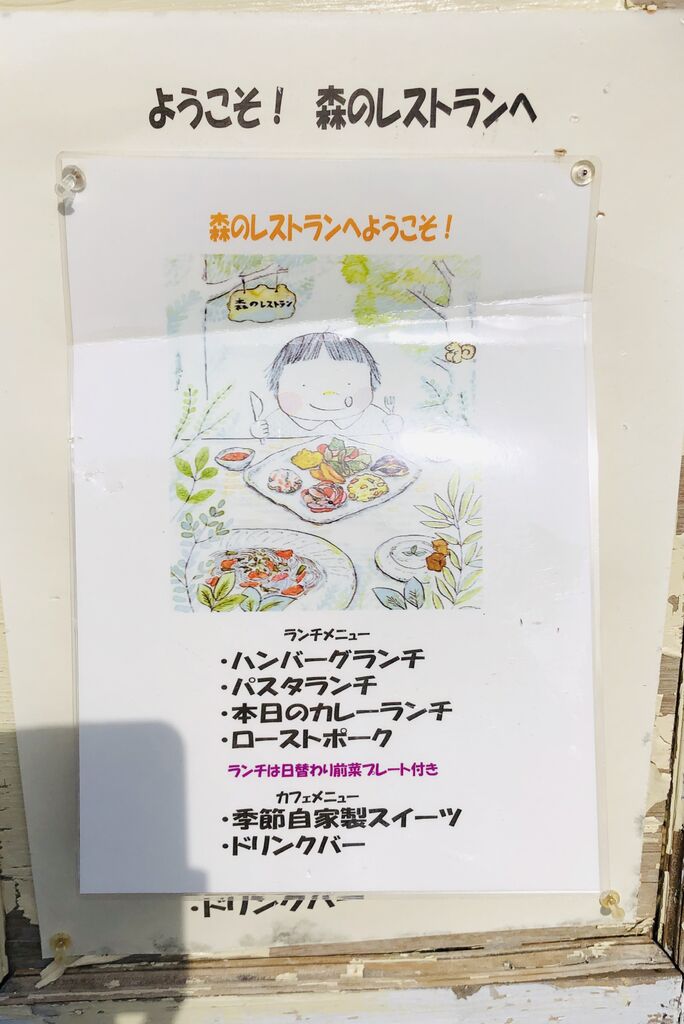 ようこそ！ 森のレストランへ
森のレストランへようこそ！
森のレストラン
ランチメニュー
・ハンバーグランチ
・パスタランチ
・本日のカレーランチ
・ローストポーク
ランチは日替わり前菜プレート付き
カフェメニュー
・季節自家製スイーツ
・ドリンクバー
・ドリンクバー